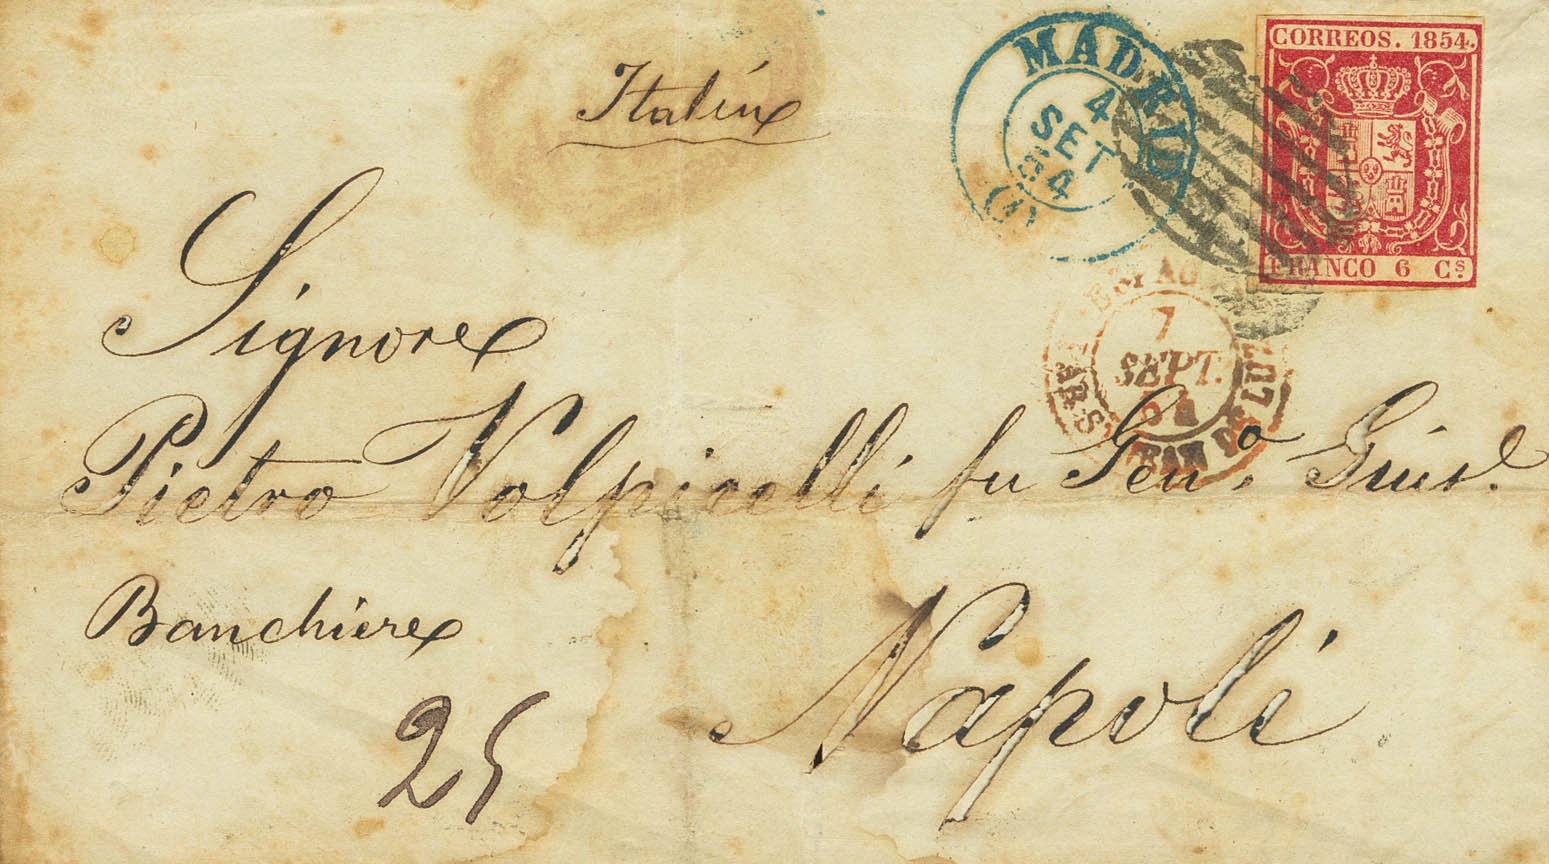 Italia
MADRID
4
SET
54
(1)
CORREOS. 1854.
FRANCO 6 Cs
7
SEPT.
54
St JEAN DE LUZ
Signore
Pietro Volpicelli fu Genº
Banchiere
Napoli
25